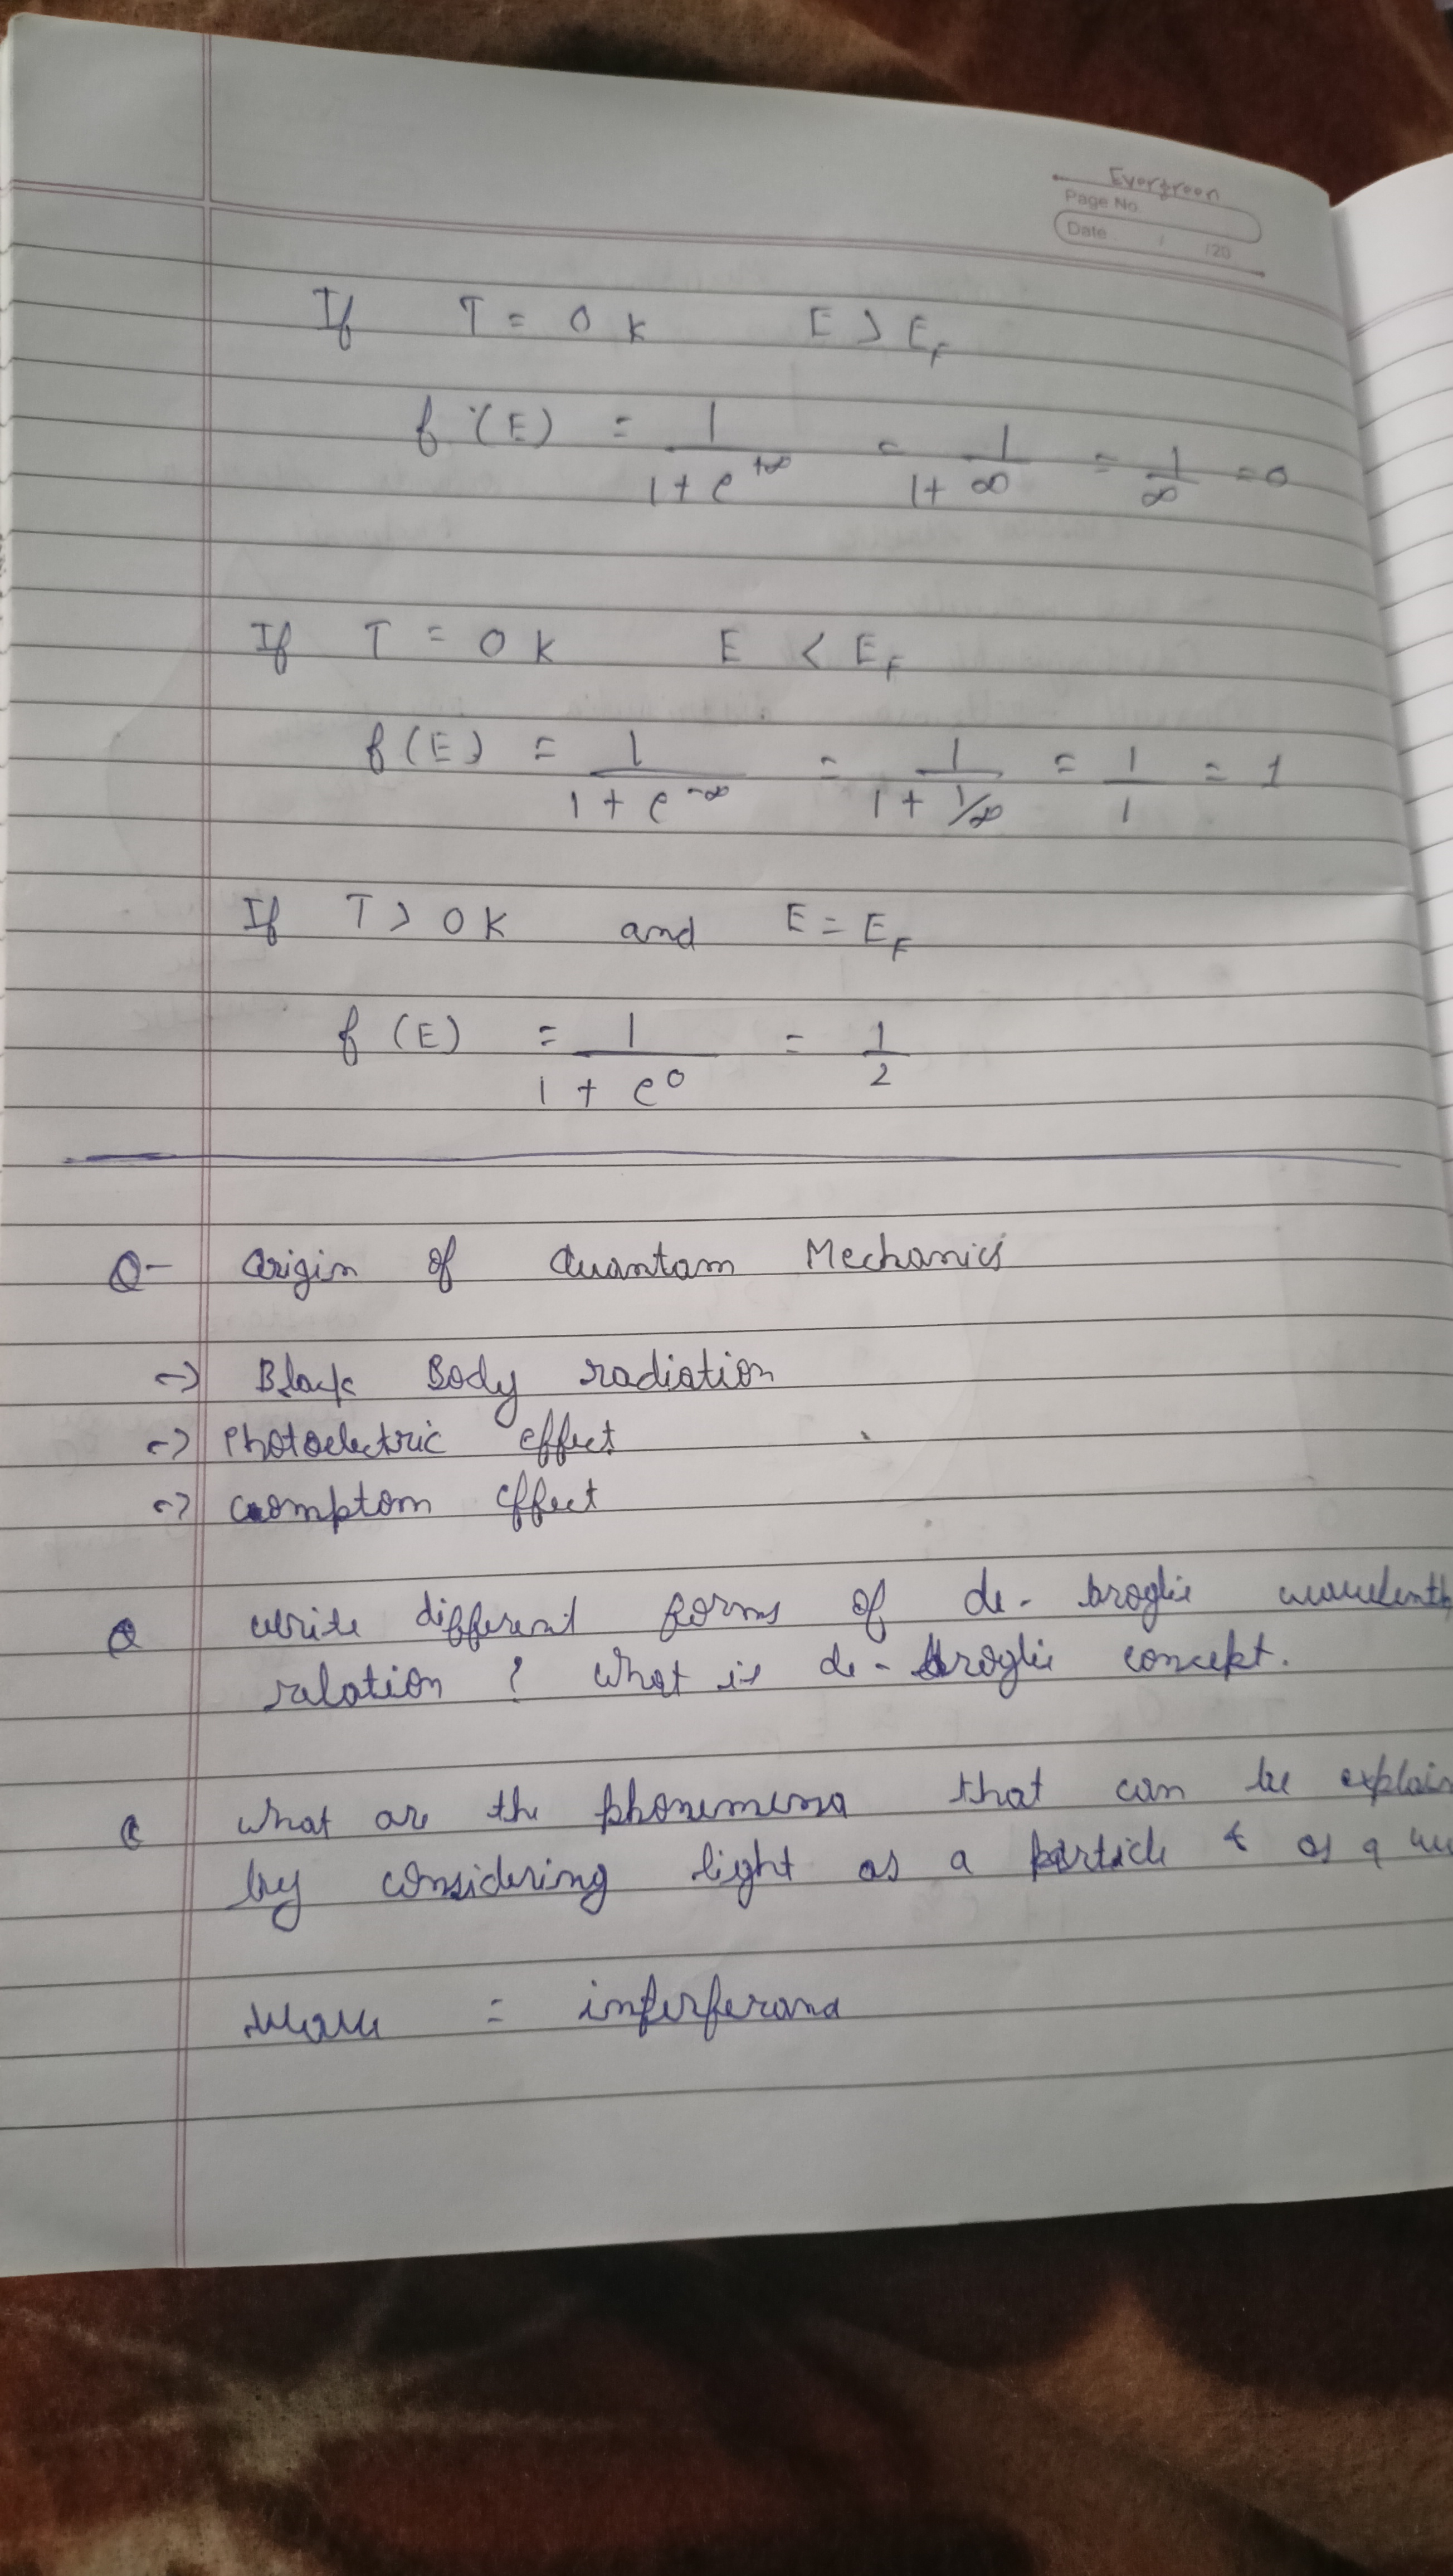 Evergreen
Page No.
Date / /20
If T = 0 K E > E_F
f (E) = 1/(1 + e^{+∞}) = 1/(1 + ∞) = 1/∞ = 0
If T = 0 K E < E_F
f (E) = 1/(1 + e^{-∞}) = 1/(1 + 1/∞) = 1/1 = 1
If T > 0 K and E = E_F
f (E) = 1/(1 + e^0) = 1/2
Q- Origin of Quantam Mechanics
→ Black Body radiation
→ Photoelectric effect
→ comptom effect
Q write different forms of de-broglie wavelenth
relation ? What is de-broglie concept.
Q What are the phonemena that can be explain
by considering light as a particle & as a
wave = inferferana